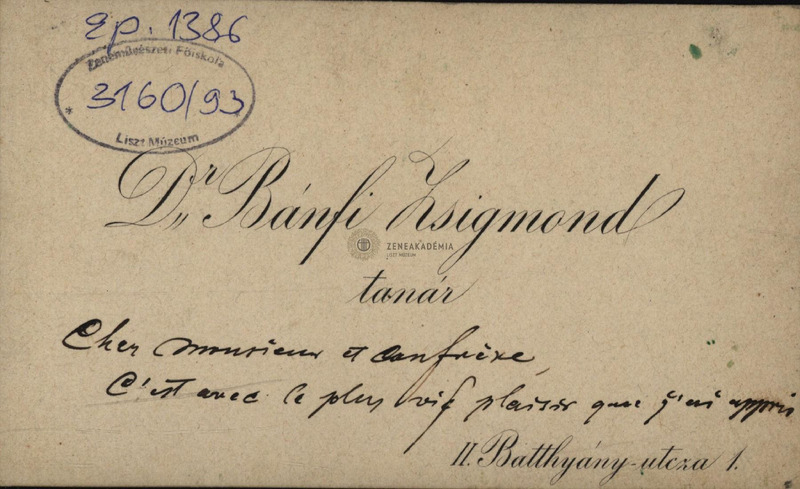 Ep. 1386
Zeneművészeti Főiskola
3160/93
* Liszt Múzeum
Dr Bánfi Zsigmond
ZENEAKADÉMIA
LISZT MÚZEUM
tanár
Cher monsieur et confrère,
C'est avec le plus vif plaisir que j'ai appris
II. Batthyány-utcza 1.